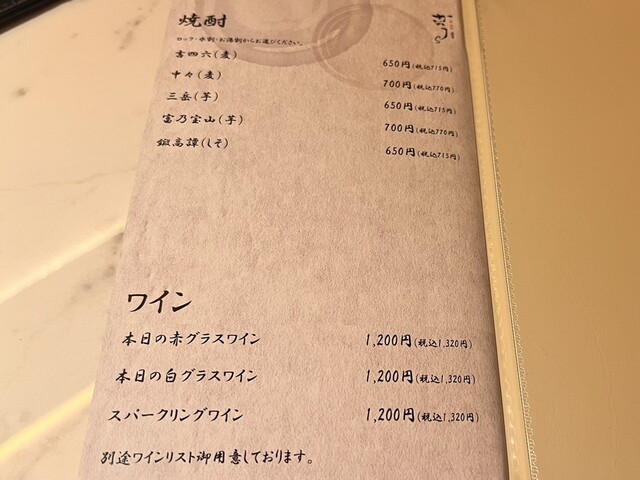 焼酎
ロック・水割・お湯割からお選びください。
吉四六(麦) 650円(税込715円)
中々(麦) 700円(税込770円)
三岳(芋) 650円(税込715円)
富乃宝山(芋) 700円(税込770円)
鍛高譚(しそ) 650円(税込715円)
ワイン
本日の赤グラスワイン 1,200円(税込1,320円)
本日の白グラスワイン 1,200円(税込1,320円)
スパークリングワイン 1,200円(税込1,320円)
別途ワインリスト御用意しております。